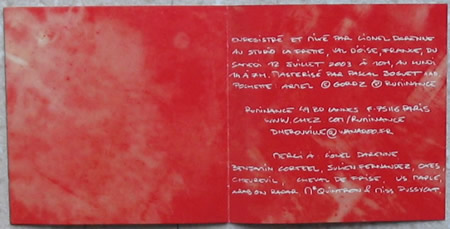 ENREGISTRÉ ET MIXÉ PAR LIONEL DARENNE
AU STUDIO LA FRETTE, VAL D'OISE, FRANCE, DU
SAMEDI 12 JUILLET 2003 À 10H, AU LUNDI
14 À 7H. MASTERISÉ PAR PASCAL
POCHETTE: ARMEL © GORGZ ℗ RUMINANCE
RUMINANCE 49 F-75116 PARIS
WWW.CHEZ.COM/RUMINANCE
DHEROUVILLE@WANADOO.FR
MERCI À: LIONEL DARENNE
BENJAMIN CORTEEL, JULIEN FERNANDEZ,
CHEVREUIL, CHEVAL DE FRISE, US MAPLE,
ARAB ON RADAR, MR QUINTRON & MISS PUSSYCAT.